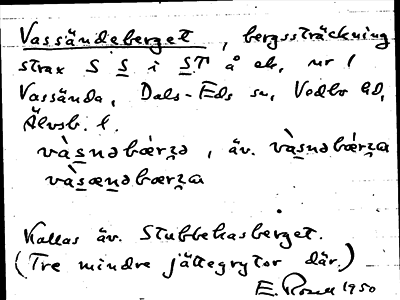 Vassändeberget, bergssträckning
strax S S i ST å ek, nr 1
Vassända, Dals-Eds sn, Vedbo hd,
Älvsb. l.
và̱snəbœ́rʒə, äv. và̱snəbœ́rʒa
và̱sœnəbœrʒa
Kallas äv. Stubbekasberget.
(Tre mindre jättegrytor där.)
E. 1950